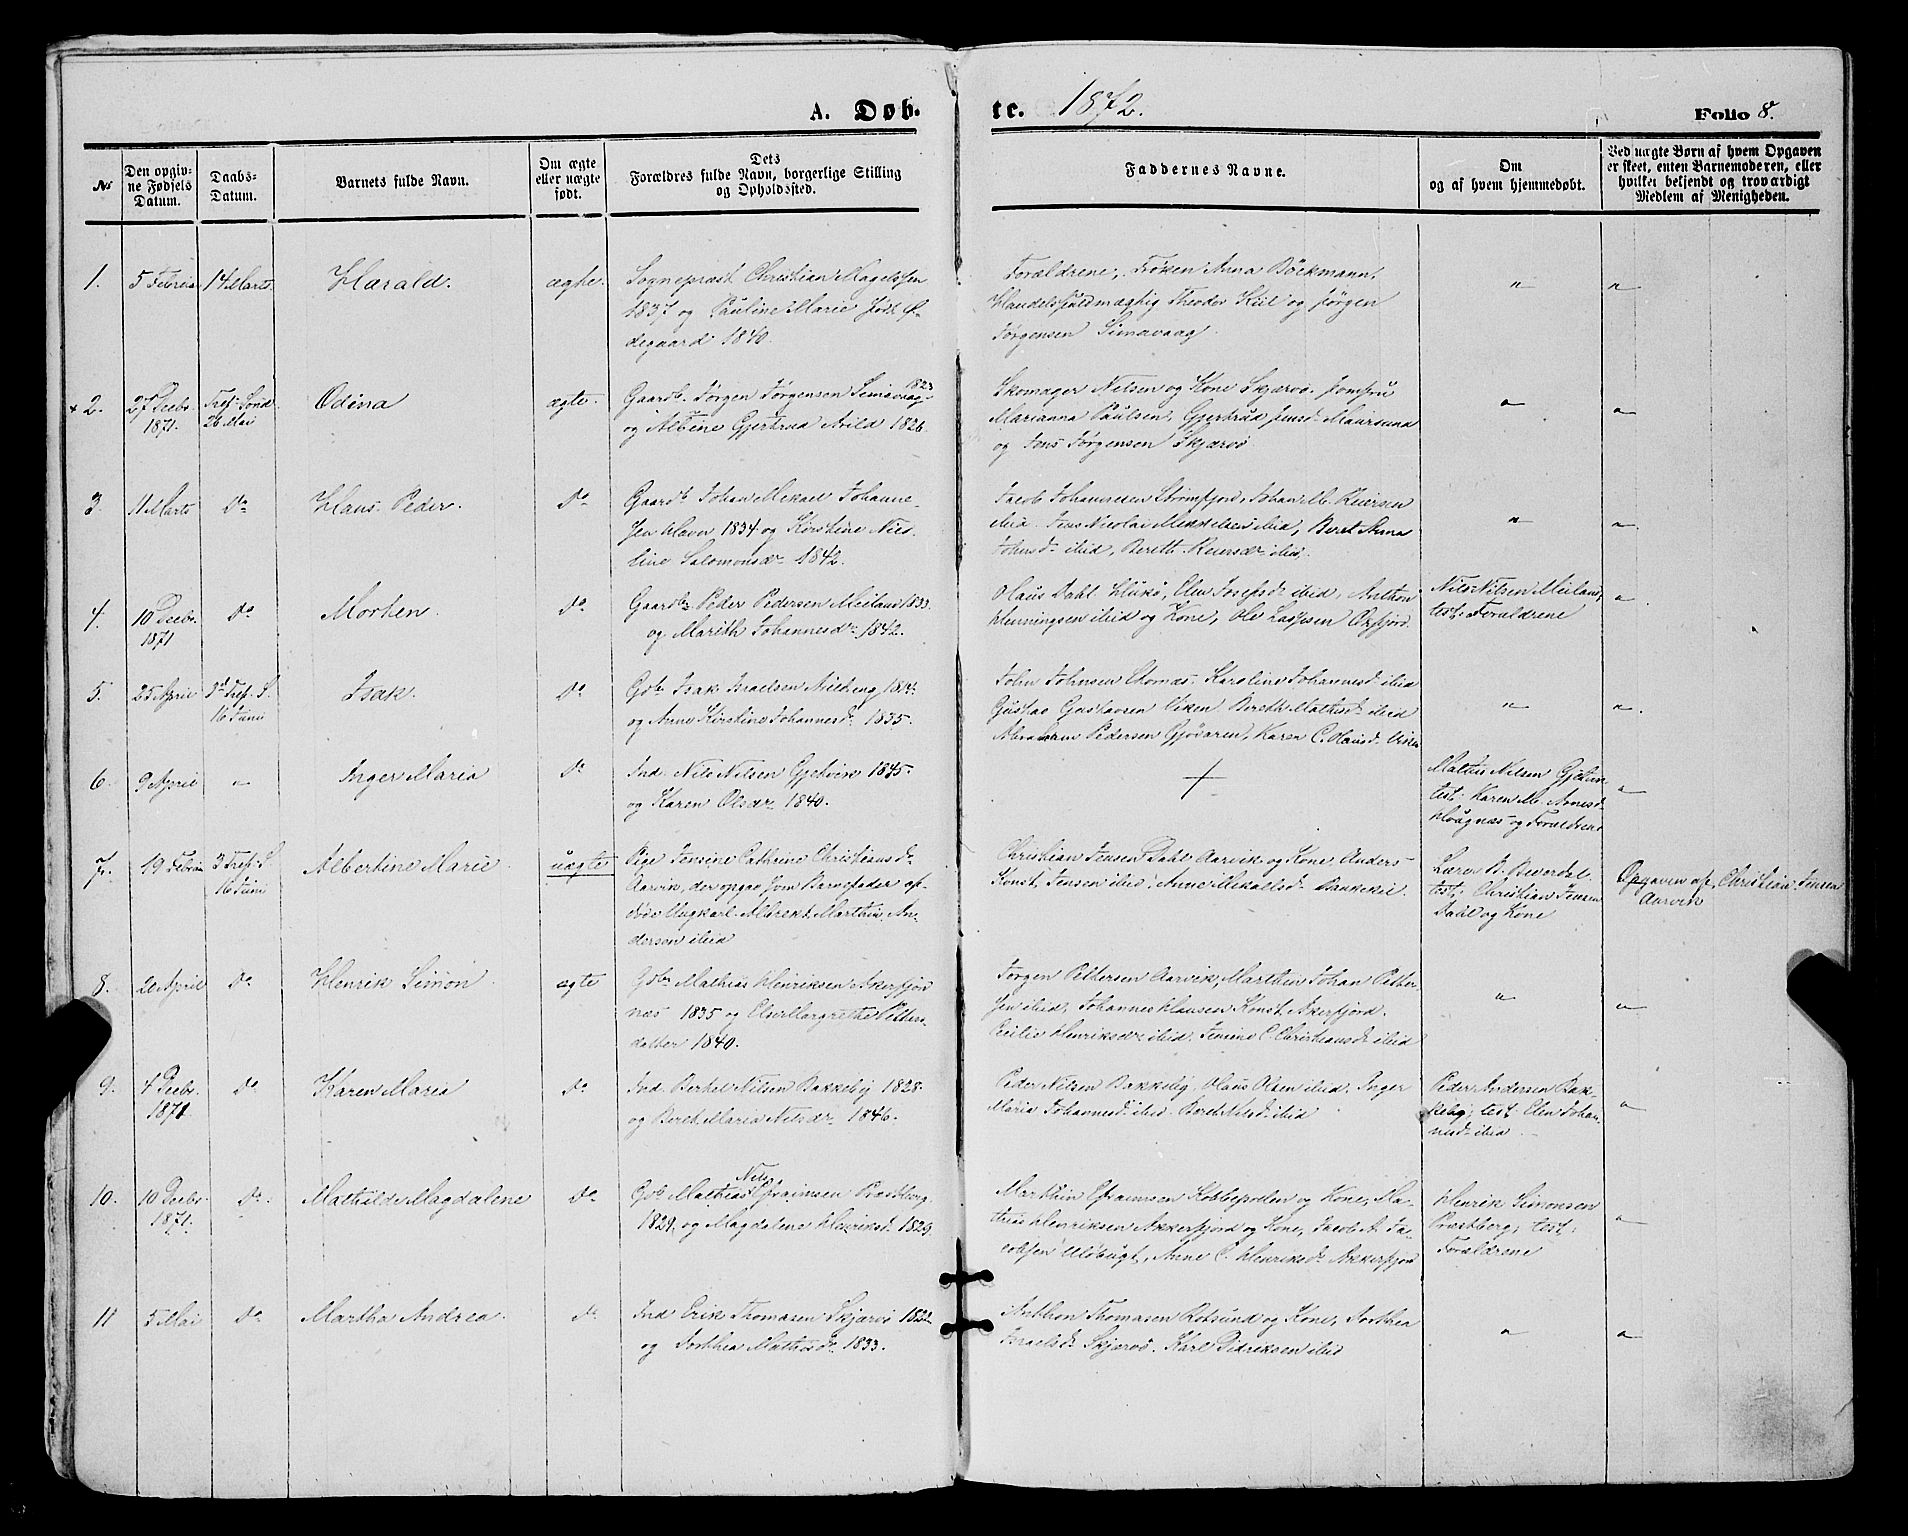 A. Døb-
te. 1872.
Folio 8.
No
Den opgiv-
ne Fødsels
Datum.
Daabs-
Datum.
Barnets fulde Navn.
Om ægte
eller uægte
født.
Dets
Forældres fulde Navn, borgerlige Stilling
og Opholdssted.
Faddernes Navne.
Om
og af hvem hjemmedøbt.
Ved uægte Børn af hvem Opgaven
er skeet, enten Barnemoderen, eller
hvilket bekjendt og troværdigt
Medlem af Menigheden.
1. 5 Februar 14 Marts. Harald. ægte.
Sognepræst Christian Magelssen
1837 og Pauline Marie født Ø-
degaard 1840.
Forældrene, Frøken Anna Böckmann,
Handelsfuldmægtig Theodor Kiil og Jørgen
Jørgensen Simavaag
" "
+ 2. 27 Decbr. 1871. Tref. Sönd. 26 Mai Odina ægte.
Gaardb. Jørgen Jørgensen Simavaag 1823
og Albine Gjertrud Arild 1826.
Skomager Nilsen og Kone Skjærvö. Jomfru
Marianna Paulsen, Gjertrud Jensd. Maursund
og Jens Jørgensen Skjærvö
" "
3. 11 Marts Do Hans Peder. Do
Gaardb. Johan Mikael Johanne-
sen Havn 1834 og Kirstine Nico-
line Salomonsdr. 1842.
Jacob Johannesen Strömfjord, Johan M. Reiersen
ibid. Jens Nicolai Mikkelsen ibid, Beret Anna
Johnsd. ibid, Bereth Reiersdr. ibid.
" "
4. 10 Decbr. 1871 Do Morten. Do
Gaardbr. Peder Pedersen Meiland 1833.
og Marith Johannesdr. 1842.
Olaus Dahl Hukö, Elen Josefsd. ibid, Anthon
Henningsen ibid og Kone, Ole Larsen Oxfjord.
Nils Nilsen Meiland;
test: Forældrene
"
5. 25 April 3d Tref. S. 16 Juni Isak. Do
Gbr. Isak Israelsen
og Anne Kirstine Johannesd. 1835.
John Johnsen Stornæs. Karoline Johannesd. ibid
Gustav Gustavsen Viken Bereth Mathisd. ibid
Abraham Pedersen Gjövaren, Karen C. Olausd. Viken
" "
6. 9 April " Inger Maria Do
Ind. Nils Nilsen Gjetvik 1845.
og Karen Olsdr. 1840.
+
Mathis Nilsen Gjetvik
test: Karen M. Arnesd.
Haagnæs og Forældrene
"
7. 19 Februar 3 Tref. S. 16 Juni Albertine Marie uægte
Pige Jensine Cathrine Christiansd.
Aarvik, der opgav som Barnefader af-
döde Ungkarl Albrekt Marthin An-
dersen ibid
Christian Jensen Dahl Aarvik og Kone, Anders
Konst. Jensen ibid, Anne Mikalsd. Bankekil.
Lærer B. Beverdal.
test: Christian Jensen
Dahl og Kone
Opgaven af Christian Jensen
Aarvik
8. 2 April Do Henrik Simon. ægte
Gbr. Mathias Henriksen Akerfjord
næs 1835 og Elen Margrethe Petters-
datter 1840.
Jørgen Pettersen Aarvik, Marthin Johan Petter-
sen ibid, Johannes Hansen Konst. Akerfjord.
Cecilie Henriksdr. ibid. Jensine C. Christiansd. ibid
" "
9. 4 Decbr. 1871 Do Karen Maria Do
Ind. Berhel Nilsen Bakkeby 1828.
og Bereth Maria Nilsdr. 1846.
Peder Nilsen Bakkeby, Olaus Olsen ibid. Inger
Maria Johannesd. ibid. Bereth Nilsd. ibid
Peder Andersen Bak-
keby; test: Elen Johan-
nesd. ibid
"
10. 10 Decbr. 1871. Do. Mathilde Magdalene Do.
Gbr. Mathias Nils Efraimsen Præstberg.
1829. og Magdalene Henriksd. 1829.
Marthin Efraimsen Kobbepollen og Kone, Ma-
thias Henriksen Akkerfjord og Kone, Jacob A. Ja-
cobsen Ulöbugt, Anne C. Henriksdr. Akkerfjord
Henrik Simonsen
Præstberg; test:
Forældrene
"
11 5 Mai Do. Martha Andrea. Do.
Ind. Erik Thomasen Skjærvö 1822
og Dorthea Mathisdr. 1833.
Anthon Thomasen Rotsund og Kone, Dorthea
Israelsd. Skjærvö. Karl Didriksen ibid
" "